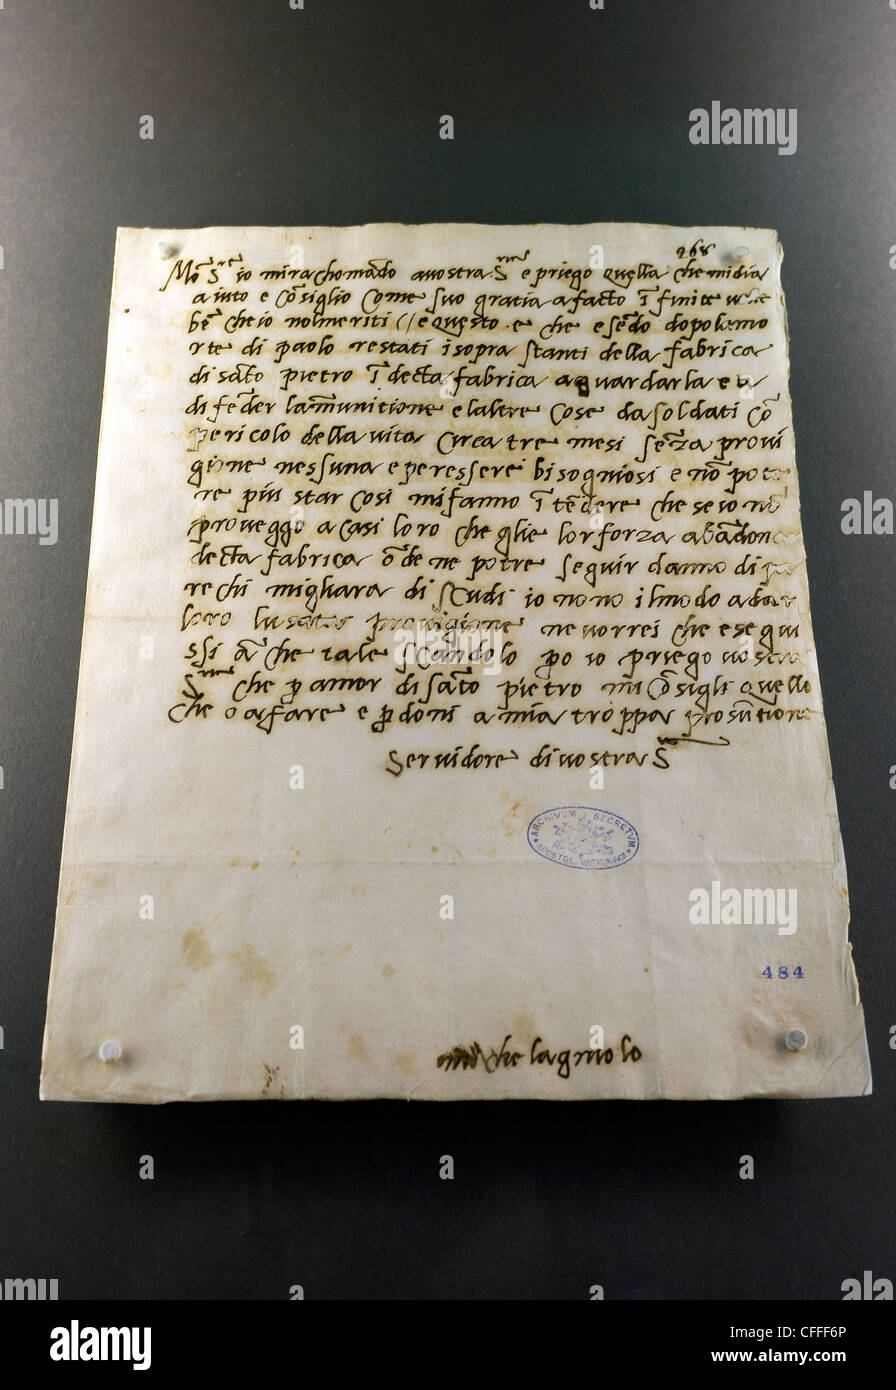 268
Mo S.re io mi rachomādo a uostra S.ria e priego quella che mi dia
aiuto e cōsiglio come suo gratia a facto ī finite
bē che io nol meriti // e questo e che esēdo dopo lamo
rte di paolo restati i sopra stanti della fabrica
di sāto pietro ī decta fabrica a guardarla e a
difēder la munitione e laltre cose da soldati cō
pericolo della uita circa tre mesi sēza proui
gione nessuna e per essere bisogniosi e nō pote
re piu star cosi mi fanno ītēdere che se io nō
proueggo a casi loro che glie lor forza abādon
decta fabrica ōde ne potre seguir danno di pa
rechi migliara di scudi io no no il modo a dar
loro lusata prouigione ne uorrei che esegui
ssi āche tale scandolo po io priego uostra
S.ria che p amor di sāto pietro mi cōsigli quello
che o a fare e p doni a mia troppa prosūtione
Seruidore di uostra S.ria
ARCHIVVM SECRETVM
APOSTOL. VATICANVM
484
michelagniolo
alamy
CFFF6P
www.alamy.com